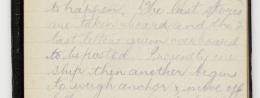 to happen. The last stores
are taken aboard and the
last letters given overboard
to be posted. Presently one
ship then another begins
to weigh anchor & move off